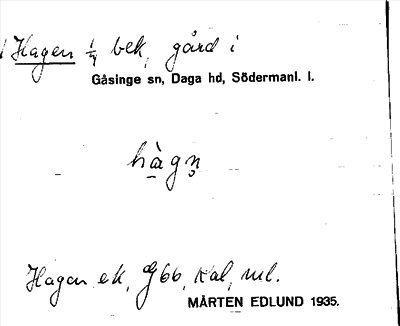 Hagen 1/4 bek, gård i
Gåsinge sn, Daga hd, Södermanl. l.
hàgn̥
Hagen ek, G66, Kal, ml.
MÅRTEN EDLUND 1935.